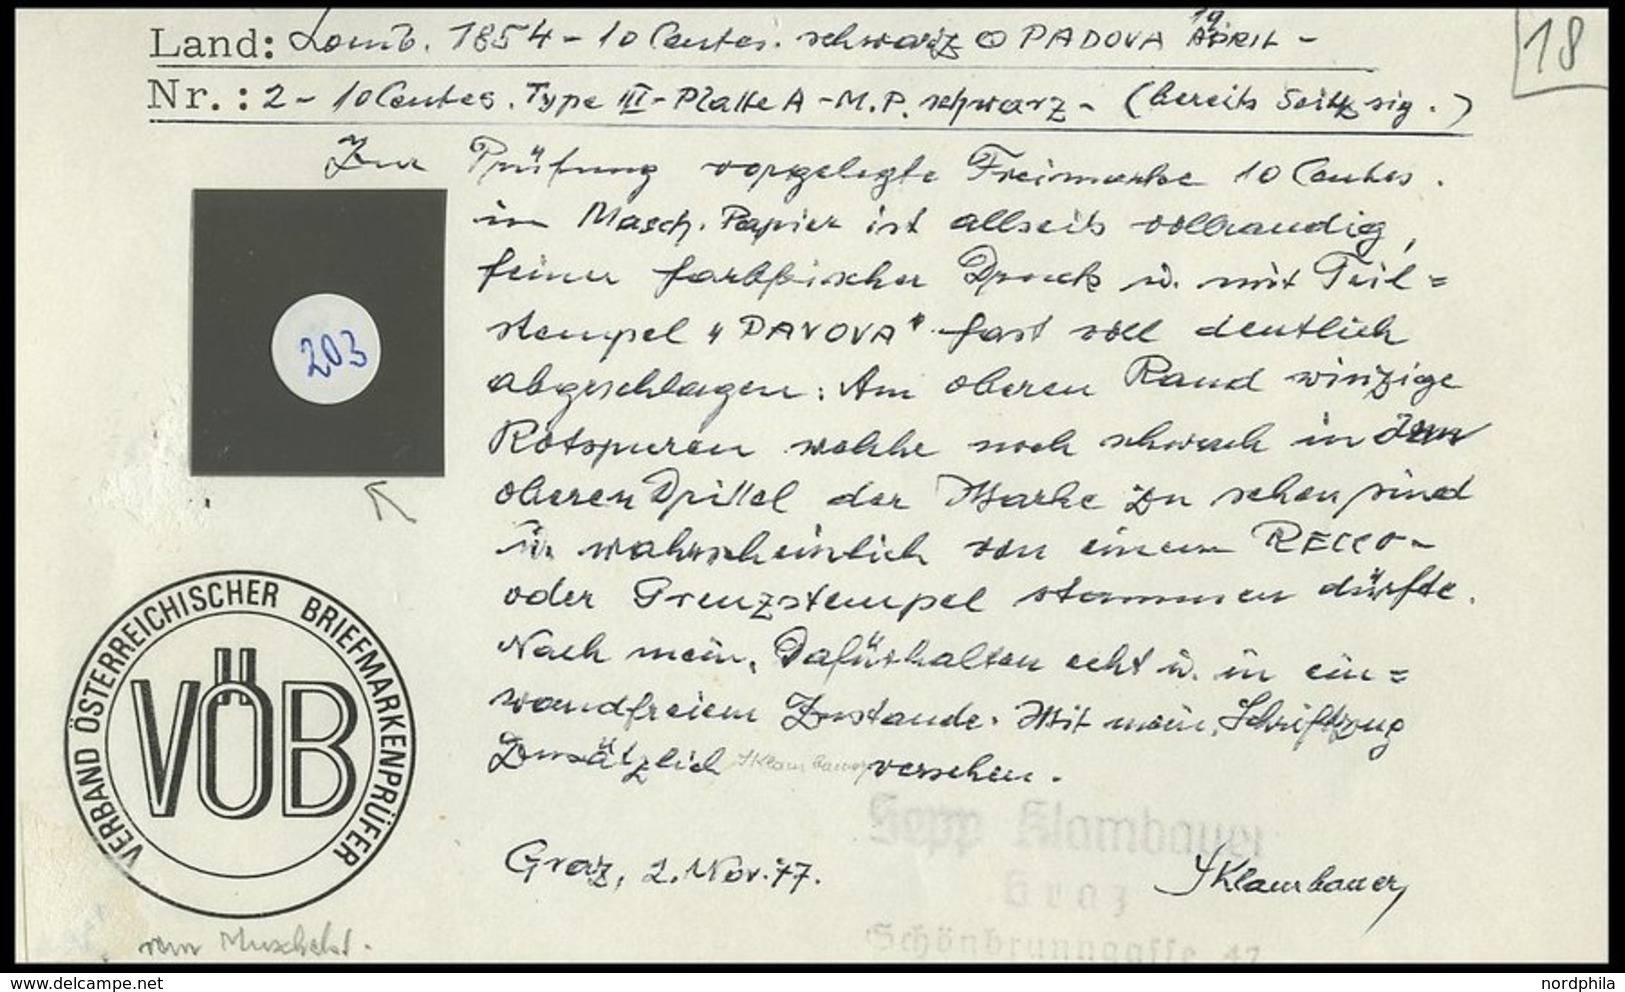 Land: Lomb. 1854 - 10 Centes. schwarz ⊙ PADOVA 19. APRIL -
18
Nr. : 2 - 10 Centes. Type III - Platte A - M.P. schwarz - (bereits Seitz sig.)
Zur Prüfung vorgelegte Freimarke 10 Centes.
in Masch. Papier ist allseits vollrandig,
feiner farbfrischer Druck u. mit Teil=
stempel "PADOVA" fast voll deutlich
203
abgeschlagen. Am oberen Rand winzige
Rotspuren welche noch schwach in
oberen Drittel der Marke zu sehen sind
u. wahrscheinlich von einem RECCO-
oder Grenzstempel stammen dürfte.
Nach mein. Dafürhalten echt u. in ein=
wandfreiem Zustande. Mit mein. Schriftzug
zusätzlich SKlambauer versehen.
VERBAND ÖSTERREICHISCHER BRIEFMARKENPRÜFER
VÖB
Sepp Klambauer
Graz, 2. Nov. 77.
SKlambauer
Graz
Schönbrunngasse 47
vom
www.delcampe.net
nordphila